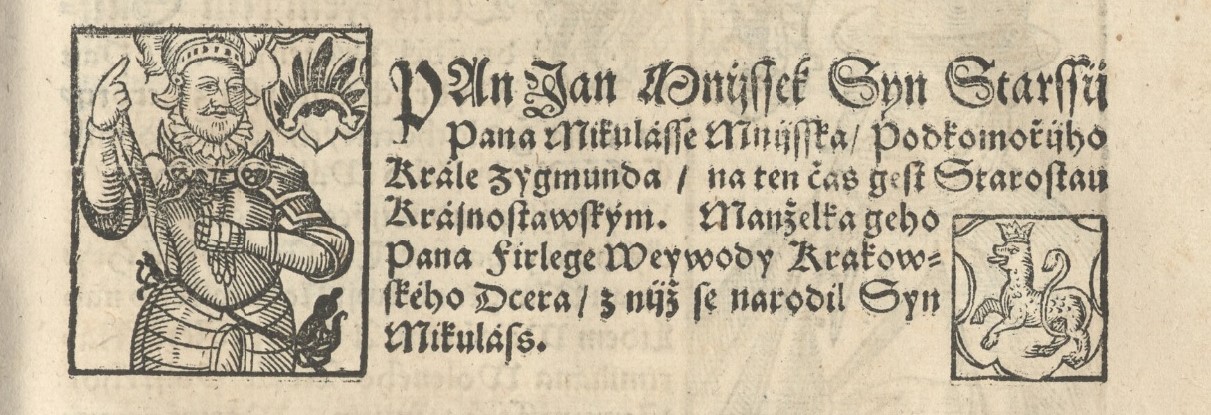 PAn Jan Mnijssek Syn Starssij
Pana Mikulásse Mnijsska / Podkomořijho
Krále Zygmunda / na ten čas gest Starostau
Krásnostawským. Manželka geho
Pana Firlege Weywody Krakow-
ského Dcera / z nijž se narodil Syn
Mikuláss.